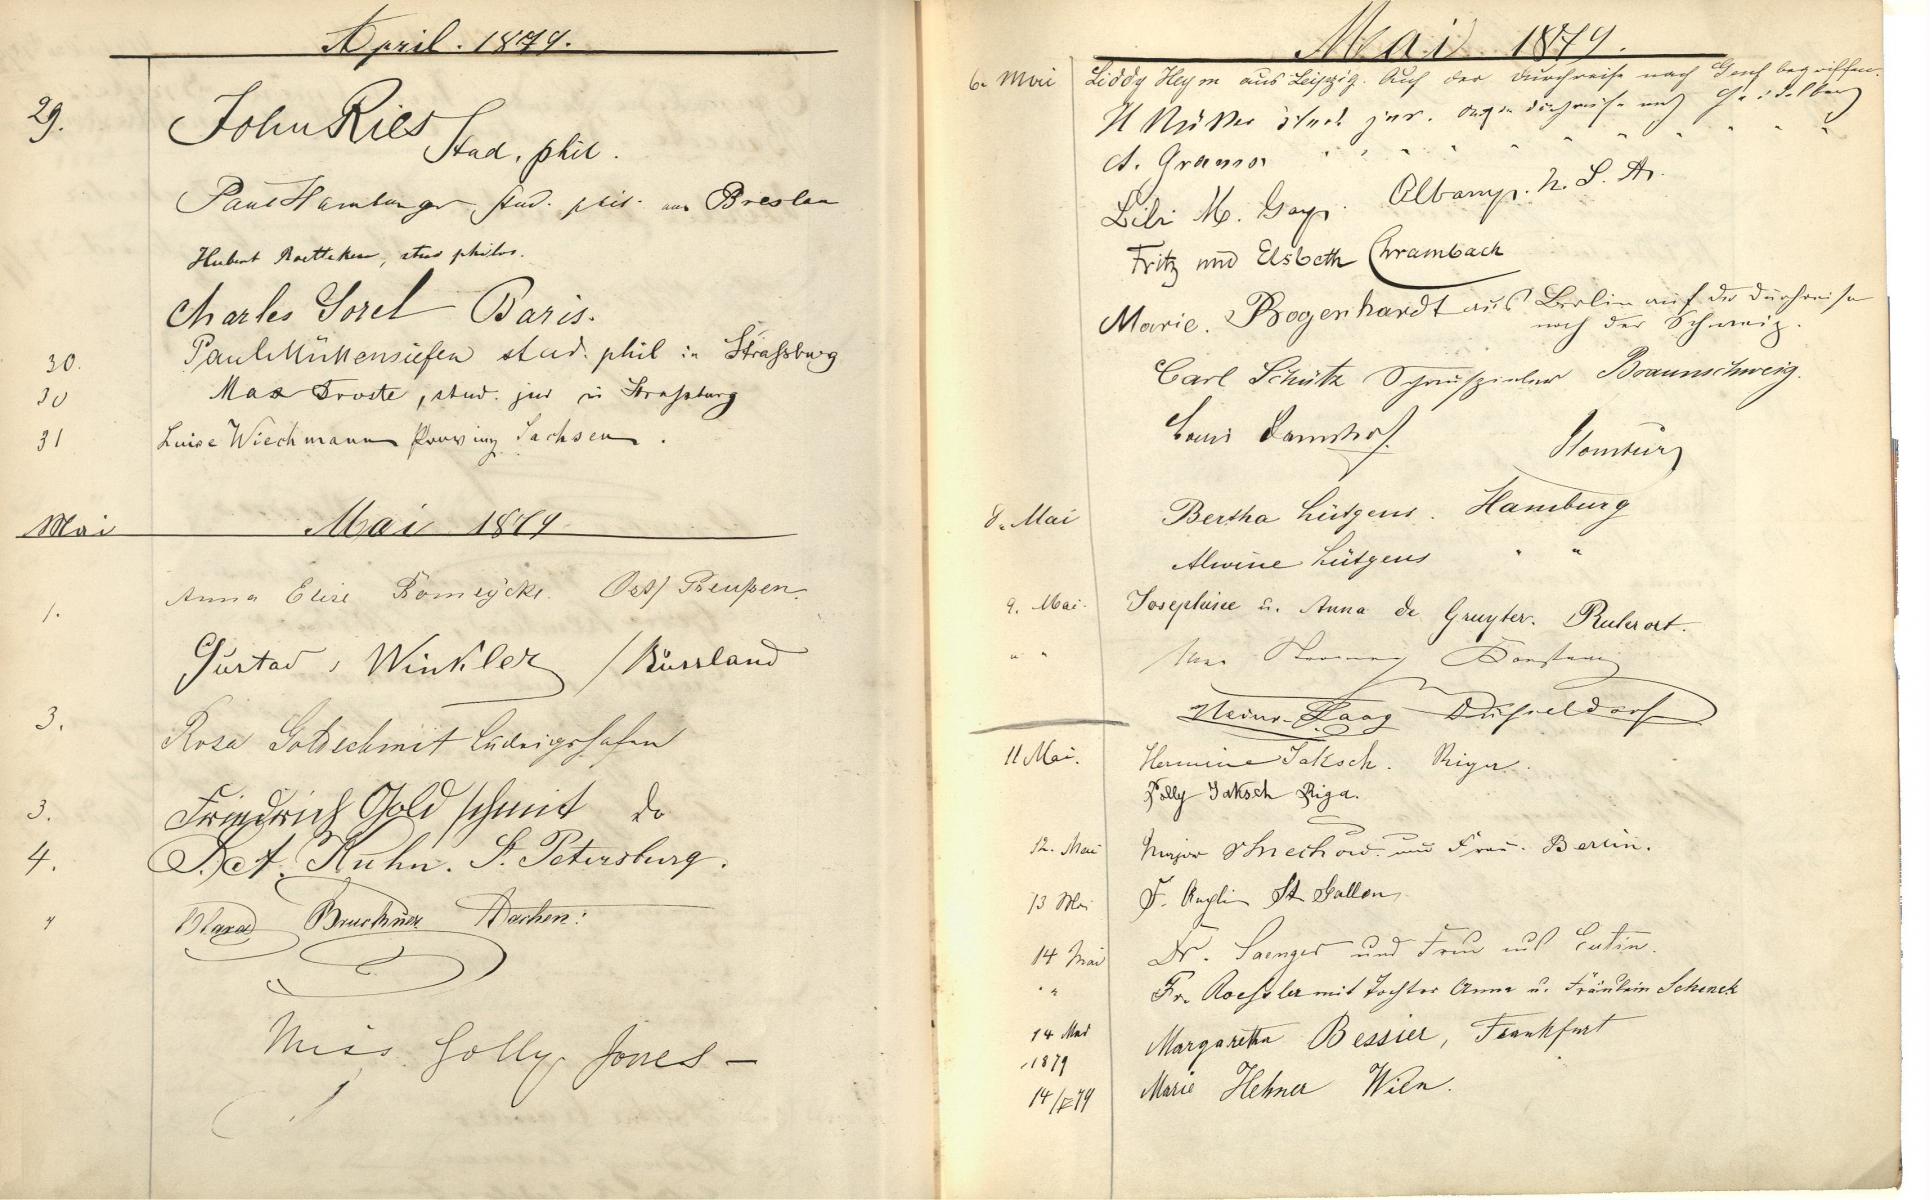 April. 1879.
29. John Ries
Stud. phil.
Paul Hamburger stud. phil. aus Breslau
Hubert Roetteken, stud philos.
Charles Sorel Paris.
30. Paul Mückensiefen stud. phil in Straßburg
30 Max Droste, stud. jur in Straßburg
31 Luise Wiechmann Provinz Sachsen.
Mai Mai 1879
1. Anna Elise Ost/Preußen.
Gustav, Winkler / Russland
3. Rosa Goldschmit Ludwigshafen
3. Friedrich Goldschmit do
4. P. A. Kuhn. St. Petersburg.
" Bruckner Aachen:
Miss Golly Jones —
Mai 1879.
6. Mai Liddy Heym aus Leipzig. Auf der Durchreise nach Genf begriffen.
H Müller stud. jur. auf der Durchreise nach Heidelberg
A. " " " " " " " "
Lili M. Gay. Albany. N. S. A.
Fritz und Elsbeth Chrambach
Marie. Bogenhardt aus Berlin auf der Durchreise
nach der Schweiz.
Carl Schütz Schauspieler Braunschweig.
Louis Damshof. Homburg
8. Mai Bertha Lütgens. Hamburg
Alwine Lütgens " "
9. Mai. Josephine u. Anna de Gruyter. Ruhrort.
" "
Heinr. Haag Düsseldorf
11 Mai. Hermine Jaksch. Riga.
Jaksch Riga.
12. Mai Major und Frau. Berlin.
13 Mai F. St. Gallen
14 Mai Dr. Saenger und Frau aus Eutin.
" " Fr. Roeßler mit Tochter Anna u. Fräulein Schenck
14 Mai Margaretha Bessier, Frankfurt
1879
14/V 79 Marie Hehner Wien.